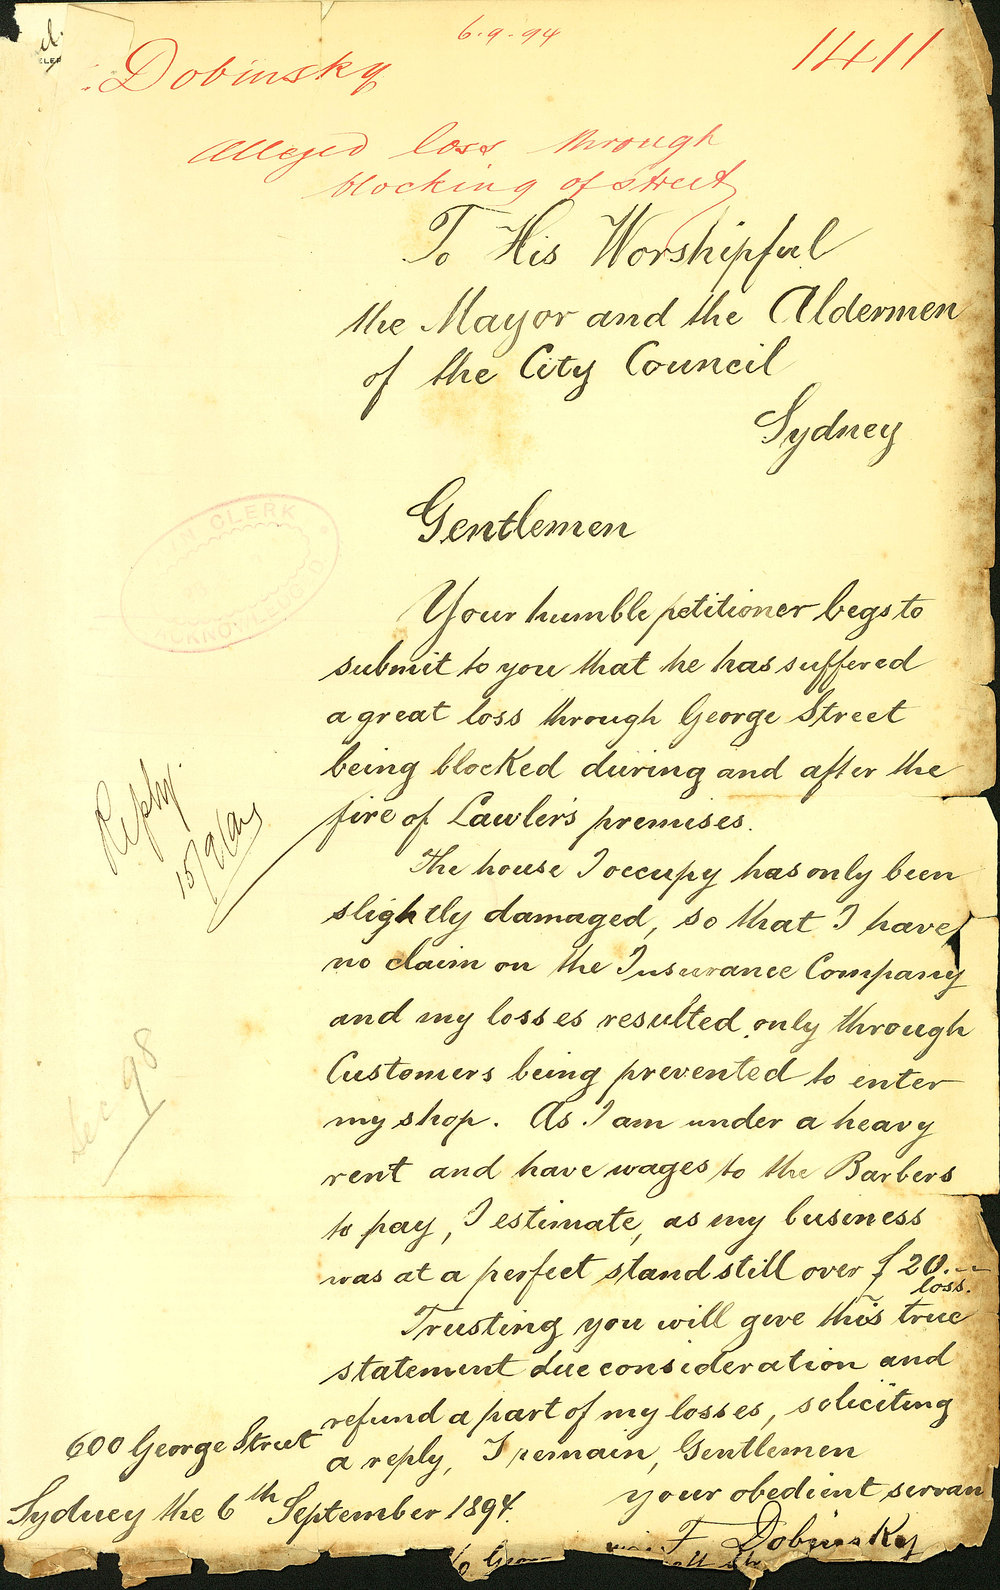 6.9.94
1411
Dobinsky
Alleged loss through
blocking of street
To His Worshipful
the Mayor and the Aldermen
of the City Council
Sydney
Gentlemen
CLERK
ACKNOWLEDGED
Your humble petitioner begs to
submit to you that he has suffered
a great loss through George Street
being blocked during and after the
fire of Lawler's premises.
Reply
The house I occupy has only been
slightly damaged, so that I have
no claim on the Insurance Company
and my losses resulted only through
Customers being prevented to enter
my shop. As I am under a heavy
rent and have wages to the Barbers
to pay, I estimate, as my business
was at a perfect standstill over £20.—
loss.
Trusting you will give this true
statement due consideration and
refund a part of my losses, soliciting
a reply, I remain, Gentlemen
your obedient servan
F Dobinsky
600 George Street
Sydney the 6th September 1894.